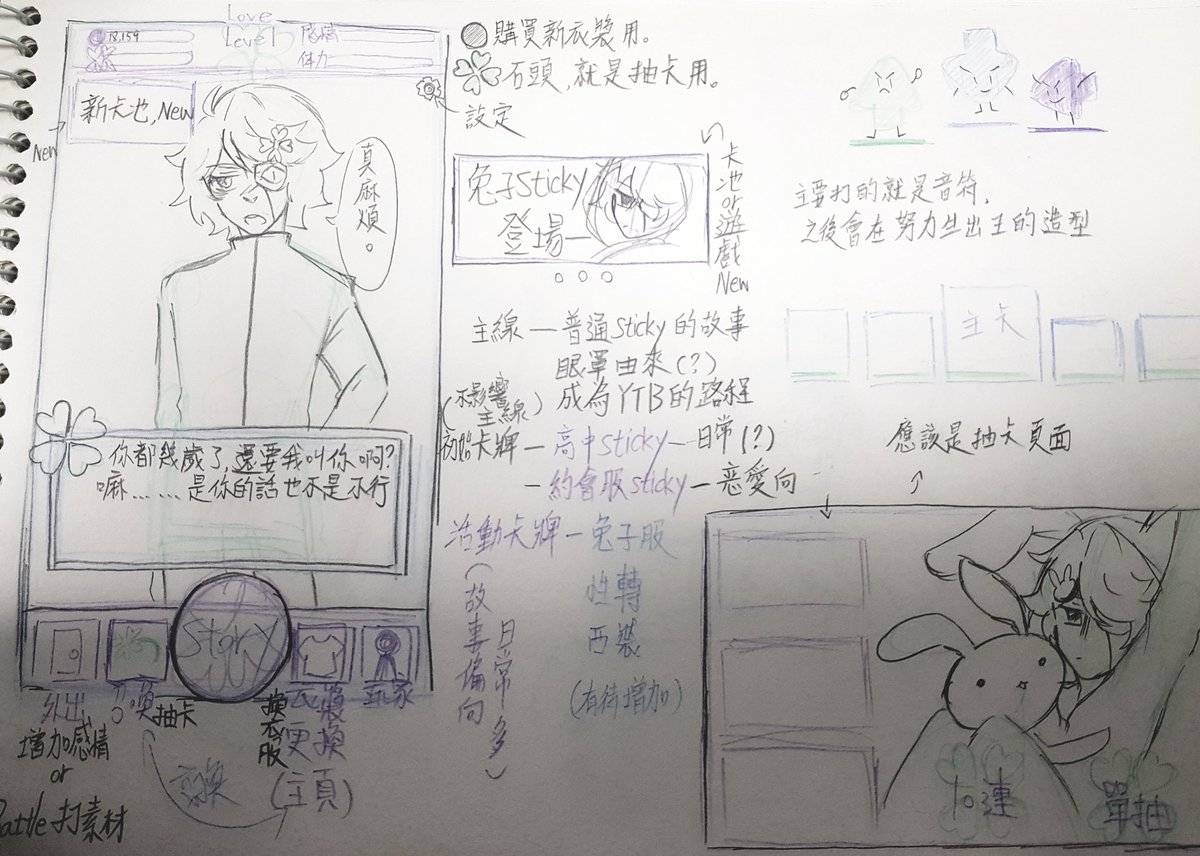 Love
Level
感情
体力
18,159
新卡池,New
New
真麻煩。
你都幾歲了,還要我叫你啊?
嘛……是你的話也不是不行
Story
外出
召喚
抽卡
換衣服
衣裝
更換
(主頁)
玩家
增加感情
or
Battle打素材
購買新衣裝用。
石頭,就是抽卡用。
設定
兔子Sticky
登場—
卡池or遊戲New
主線—普通Sticky的故事
眼罩由來(?)
成為YTB的路程
(不影響主線)
初始卡牌—高中Sticky—日常(?)
—約會服Sticky—恋愛向
活動卡牌—兔子服
性轉
西裝
(有待增加)
(故事偏向
日常多)
主要打的就是音符,
之後會在努力生出王的造型
主卡
應該是抽卡頁面
10連
單抽